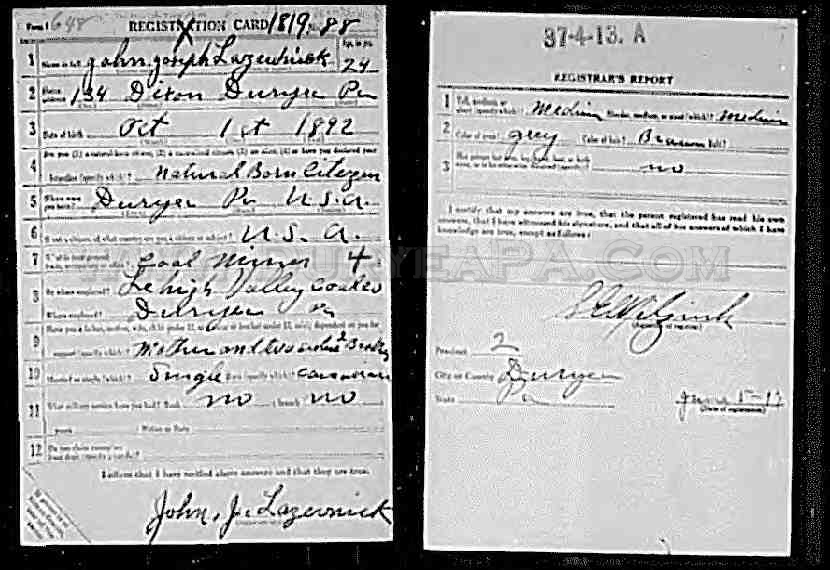 Form 1 648 REGISTRATION CARD 1819 No. 88
1 Name in full John Joseph Lazewnick Age, in yrs. 24
2 Home address 134 Dixon Duryea Pa
3 Date of birth Oct 1st 1892
4 Are you (1) a natural-born citizen, (2) a naturalized citizen, (3) an alien, (4) or have you declared your intention (specify which)? Natural Born Citizen
5 Where were you born? Duryea Pa U.S.A.
6 If not a citizen, of what country are you a citizen or subject? U.S.A.
7 Coal Miner 4
8 By whom employed? Lehigh Valley Coal Co
Where employed? Duryea Pa
9 Have you a father, mother, wife, child under 12, or a sister or brother under 12, solely dependent on you for
support (specify which)? Mother and
10 Married or single (which)? Single Race (specify which)? Caucasian
11 What military service have you had? Rank no ; branch no
years Nation or State
12 Do you claim exemption from draft (specify grounds)?
I affirm that I have verified above answers and that they are true.
John, J. Lazewnick
37-4-13. A
REGISTRAR'S REPORT
1 Tall, medium, or short (specify which)? Medium Slender, medium, or stout (which)? Medium
2 Color of eyes? grey Color of hair? Brown Bald?
3 Has person lost arm, leg, hand, foot, or both eyes, or is he otherwise disabled (specify)? no
I certify that my answers are true, that the person registered has read his own
answers, that I have witnessed his signature, and that all of his answers of which I have
knowledge are true, except as follows:
DURYEAPA.COM
(Signature of registrar)
Precinct 2
City or County Duryea
State Pa
June 5-17
(Date of registration)